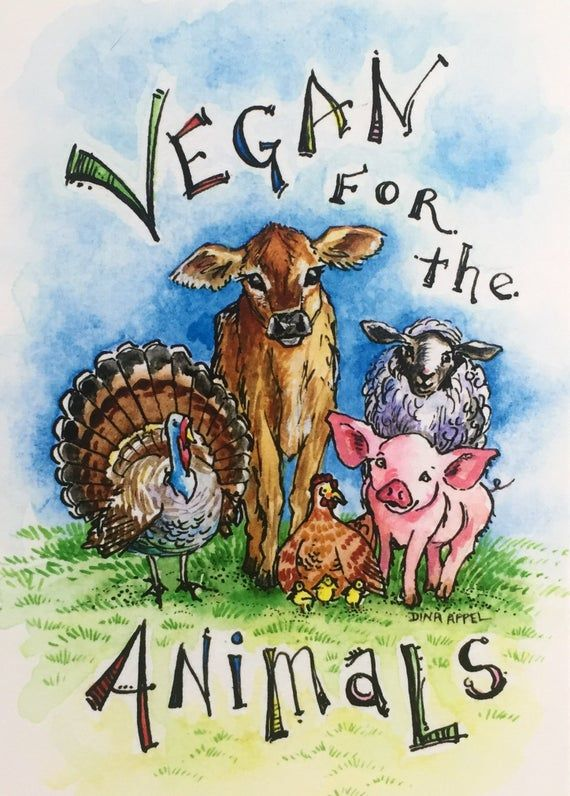 VEGAN
FOR
the
DINA APPEL
ANimaLS